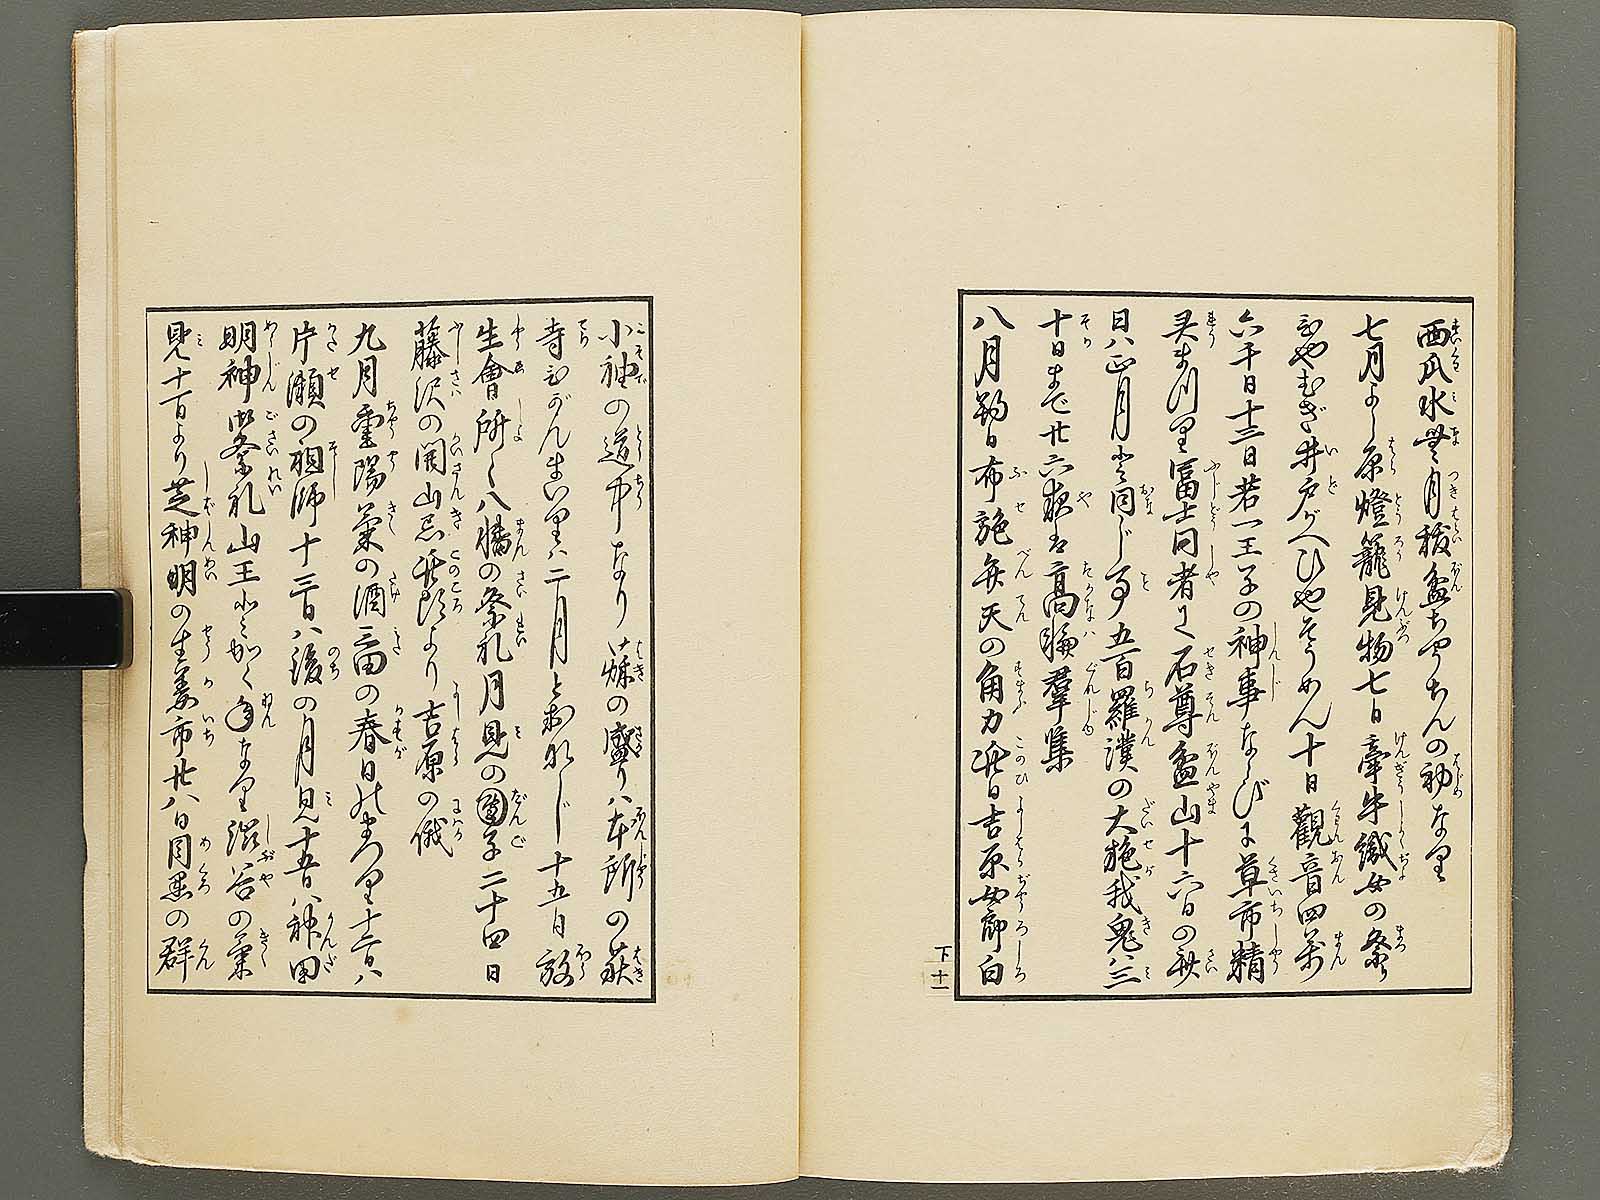 西瓜水無月祓盆ちやうちんの初なり
七月よし原燈籠見物七日牽牛織女の祭り
ひやむぎ井戸がへひやさうめん十日觀音四万
六千日十三日若一王子の神事ならびに草市精
灵まつり冨士同者に石尊盆山十六日の斎
日ハ正月と同じ事五百羅漢の大施我鬼ハ三
十日まで廿六夜は高輪羣集
八月朔日布施弁天の角力此日吉原女郎白
下十一
小袖の道中なり萩の盛りハ本所の萩
寺ひがんまいりハ二月と おなじ十五日放
生會所々八幡の祭礼月見の團子二十四日
藤沢の開山忌此頃より吉原の俄
九月重陽菊の酒三田の春日まつり十二日ハ
片瀬の祖師十三日ハ後の月見十五日ハ神田
明神御祭礼山王とかく年なり渋谷の菊
見十一日より芝神明の生姜市廿八日目黒の群